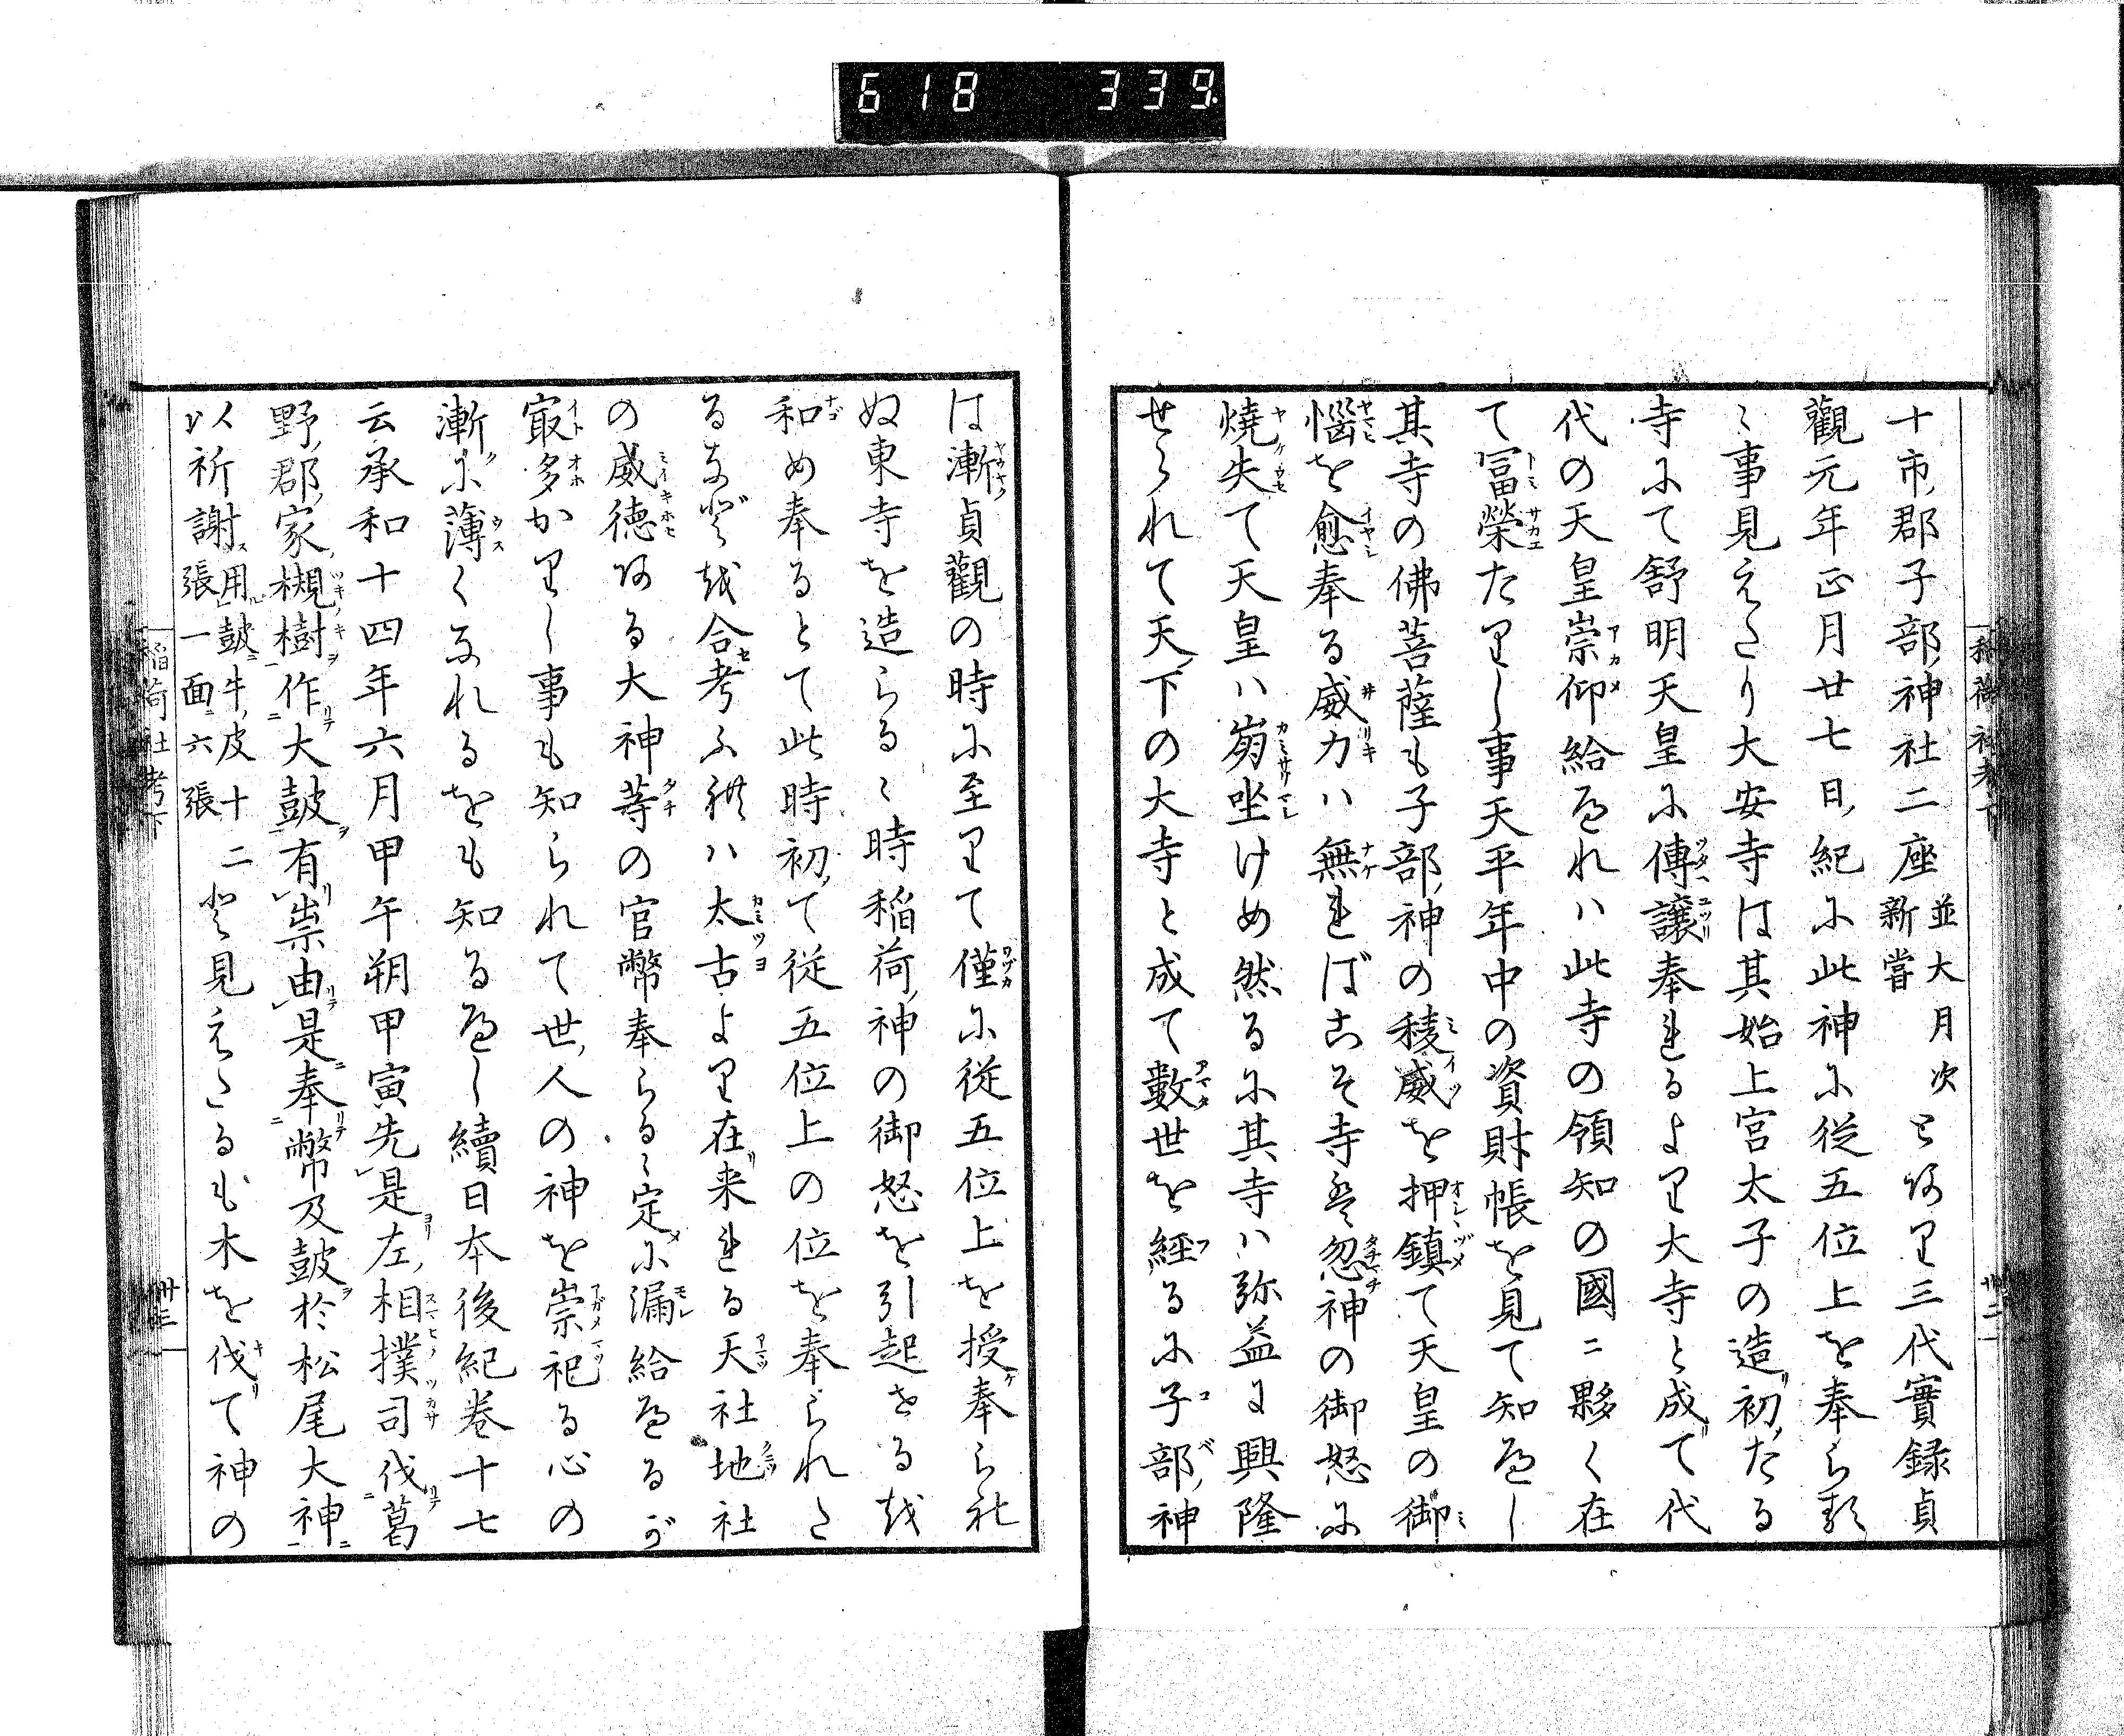 618 339
十市郡子部神社二座並大月次新嘗とあり三代實録貞
觀元年正月廿七日紀に此神に従五位上を奉られ
し事見えたり大安寺は其始上宮太子の造初たる
寺にて舒明天皇に傳譲奉れるより大寺と成て代
代の天皇崇仰給へれハ此寺の領知の國ニ夥く在
て冨榮たりし事天平年中の資財帳を見て知へし
其寺の佛菩薩も子部神の稜威を押鎮て天皇の御
惱を愈奉る威力ハ無ればこそ寺は忽神の御怒に
燒失て天皇ハ崩坐けめ然るに其寺ハ弥益に興隆
せられて天下の大寺と成て數世を經るに子部神
は漸貞觀の時に至りて僅に従五位上を授奉られ
ぬ東寺を造らるゝ時稲荷神の御怒を引起せるを
和め奉るとて此時初て従五位上の位を奉られた
るなどを合考ふ れハ太古より在来れる天社地社
の威徳ある大神等の官幣奉らるゝ定に漏給へるが
冣多かりし事も知られて世人の神を崇祀る心の
漸に薄くなれるをも知るへし續日本後紀巻十七
云承和十四年六月甲午朔甲寅先是左相撲司伐葛
野郡家槻樹作大鼓有祟由是奉幣及鼓於松尾大神
以祈謝用鼓牛皮十二張一面六張と見えたるも木を伐て神の
稲荷社考下
卅三